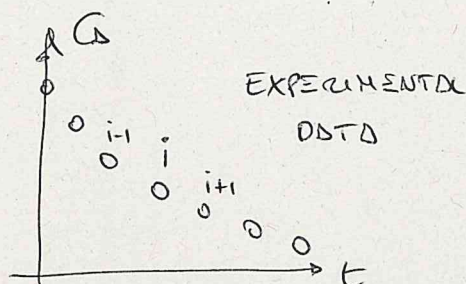 CA
EXPERIMENTAL
DATA
i-1 i i+1
t